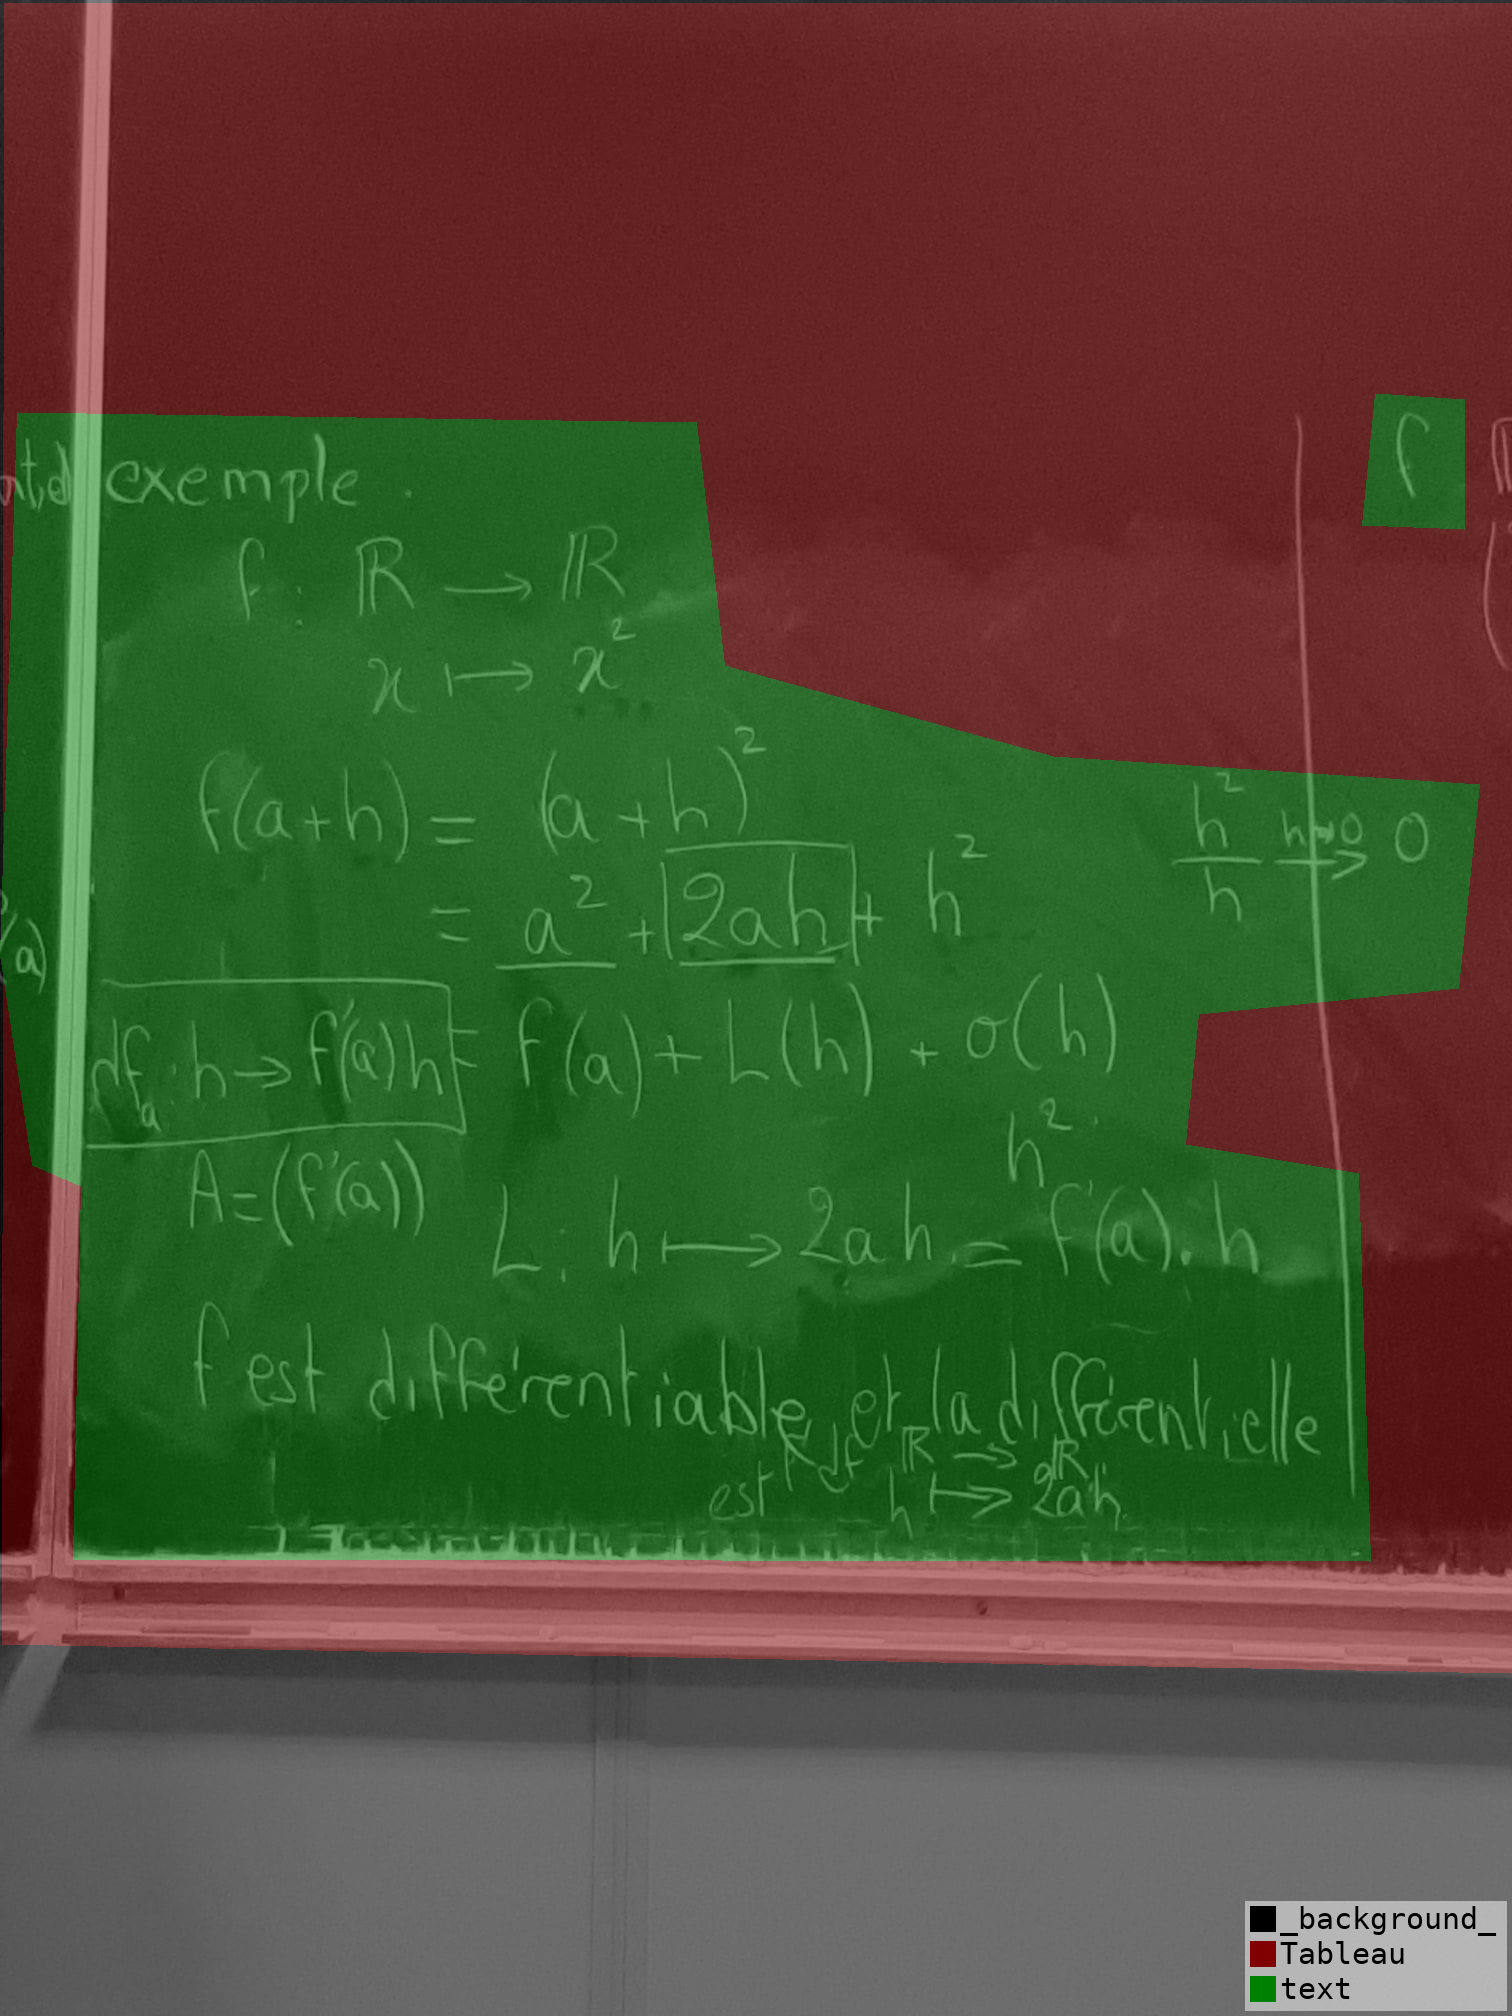 exemple.
f : ℝ → ℝ
x ↦ x²
f(a+h) = (a+h)²
= a² + 2ah + h²
h²/h →(h→0) 0
df_a : h → f'(a)h
= f(a) + L(h) + o(h)
h²
A = (f'(a))
L : h ↦ 2ah = f'(a).h
f est différentiable et la différentielle
est df ℝ → ℝ
h ↦ 2ah
f
(a)
_background_
Tableau
text